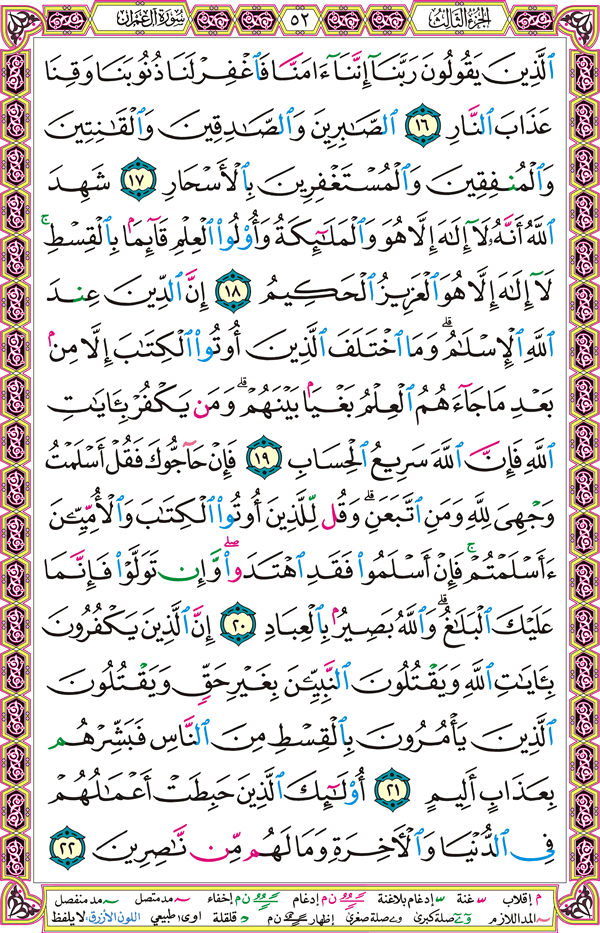 الجزء الثالث ٥٢ سورة آل عمران
ٱلَّذِينَ يَقُولُونَ رَبَّنَآ إِنَّنَآ ءَامَنَّا فَٱغْفِرْ لَنَا ذُنُوبَنَا وَقِنَا
عَذَابَ ٱلنَّارِ ١٦ ٱلصَّٰبِرِينَ وَٱلصَّٰدِقِينَ وَٱلْقَٰنِتِينَ
وَٱلْمُنفِقِينَ وَٱلْمُسْتَغْفِرِينَ بِٱلْأَسْحَارِ ١٧ شَهِدَ
ٱللَّهُ أَنَّهُۥ لَآ إِلَٰهَ إِلَّا هُوَ وَٱلْمَلَٰٓئِكَةُ وَأُو۟لُوا۟ ٱلْعِلْمِ قَآئِمًۢا بِٱلْقِسْطِ ۚ
لَآ إِلَٰهَ إِلَّا هُوَ ٱلْعَزِيزُ ٱلْحَكِيمُ ١٨ إِنَّ ٱلدِّينَ عِندَ
ٱللَّهِ ٱلْإِسْلَٰمُ ۗ وَمَا ٱخْتَلَفَ ٱلَّذِينَ أُوتُوا۟ ٱلْكِتَٰبَ إِلَّا مِنۢ
بَعْدِ مَا جَآءَهُمُ ٱلْعِلْمُ بَغْيًۢا بَيْنَهُمْ ۗ وَمَن يَكْفُرْ بِـَٔايَٰتِ
ٱللَّهِ فَإِنَّ ٱللَّهَ سَرِيعُ ٱلْحِسَابِ ١٩ فَإِنْ حَآجُّوكَ فَقُلْ أَسْلَمْتُ
وَجْهِىَ لِلَّهِ وَمَنِ ٱتَّبَعَنِ ۗ وَقُل لِّلَّذِينَ أُوتُوا۟ ٱلْكِتَٰبَ وَٱلْأُمِّيِّـۧنَ
ءَأَسْلَمْتُمْ ۚ فَإِنْ أَسْلَمُوا۟ فَقَدِ ٱهْتَدَوا۟ ۖ وَّإِن تَوَلَّوْا۟ فَإِنَّمَا
عَلَيْكَ ٱلْبَلَٰغُ ۗ وَٱللَّهُ بَصِيرٌۢ بِٱلْعِبَادِ ٢٠ إِنَّ ٱلَّذِينَ يَكْفُرُونَ
بِـَٔايَٰتِ ٱللَّهِ وَيَقْتُلُونَ ٱلنَّبِيِّـۧنَ بِغَيْرِ حَقٍّ وَيَقْتُلُونَ
ٱلَّذِينَ يَأْمُرُونَ بِٱلْقِسْطِ مِنَ ٱلنَّاسِ فَبَشِّرْهُم
بِعَذَابٍ أَلِيمٍ ٢١ أُو۟لَٰٓئِكَ ٱلَّذِينَ حَبِطَتْ أَعْمَٰلُهُمْ
فِى ٱلدُّنْيَا وَٱلْءَاخِرَةِ وَمَا لَهُم مِّن نَّٰصِرِينَ ٢٢
م إقلاب غنة إدغام بلاغنة ن م إدغام ن م إخفاء مد متصل مد منفصل
المد اللازم صلة كبرى صلة صغرى إظهار ن م قلقلة اوى: طبيعي اللون الأزرق: لا يلفظ